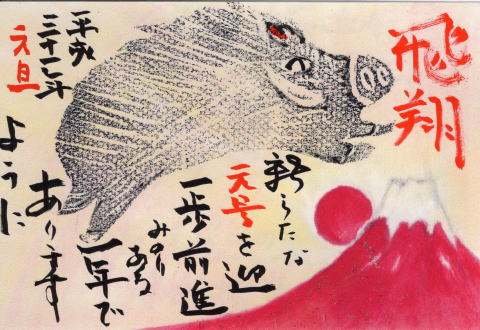 飛翔
新らたな
元号を迎
一歩前進
みのり
ある
一年で
あります
ように
平成
三十一年
元旦